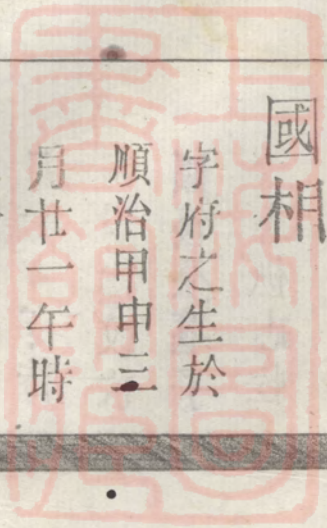 國相
字府之生於
順治甲申三
月廿一午時